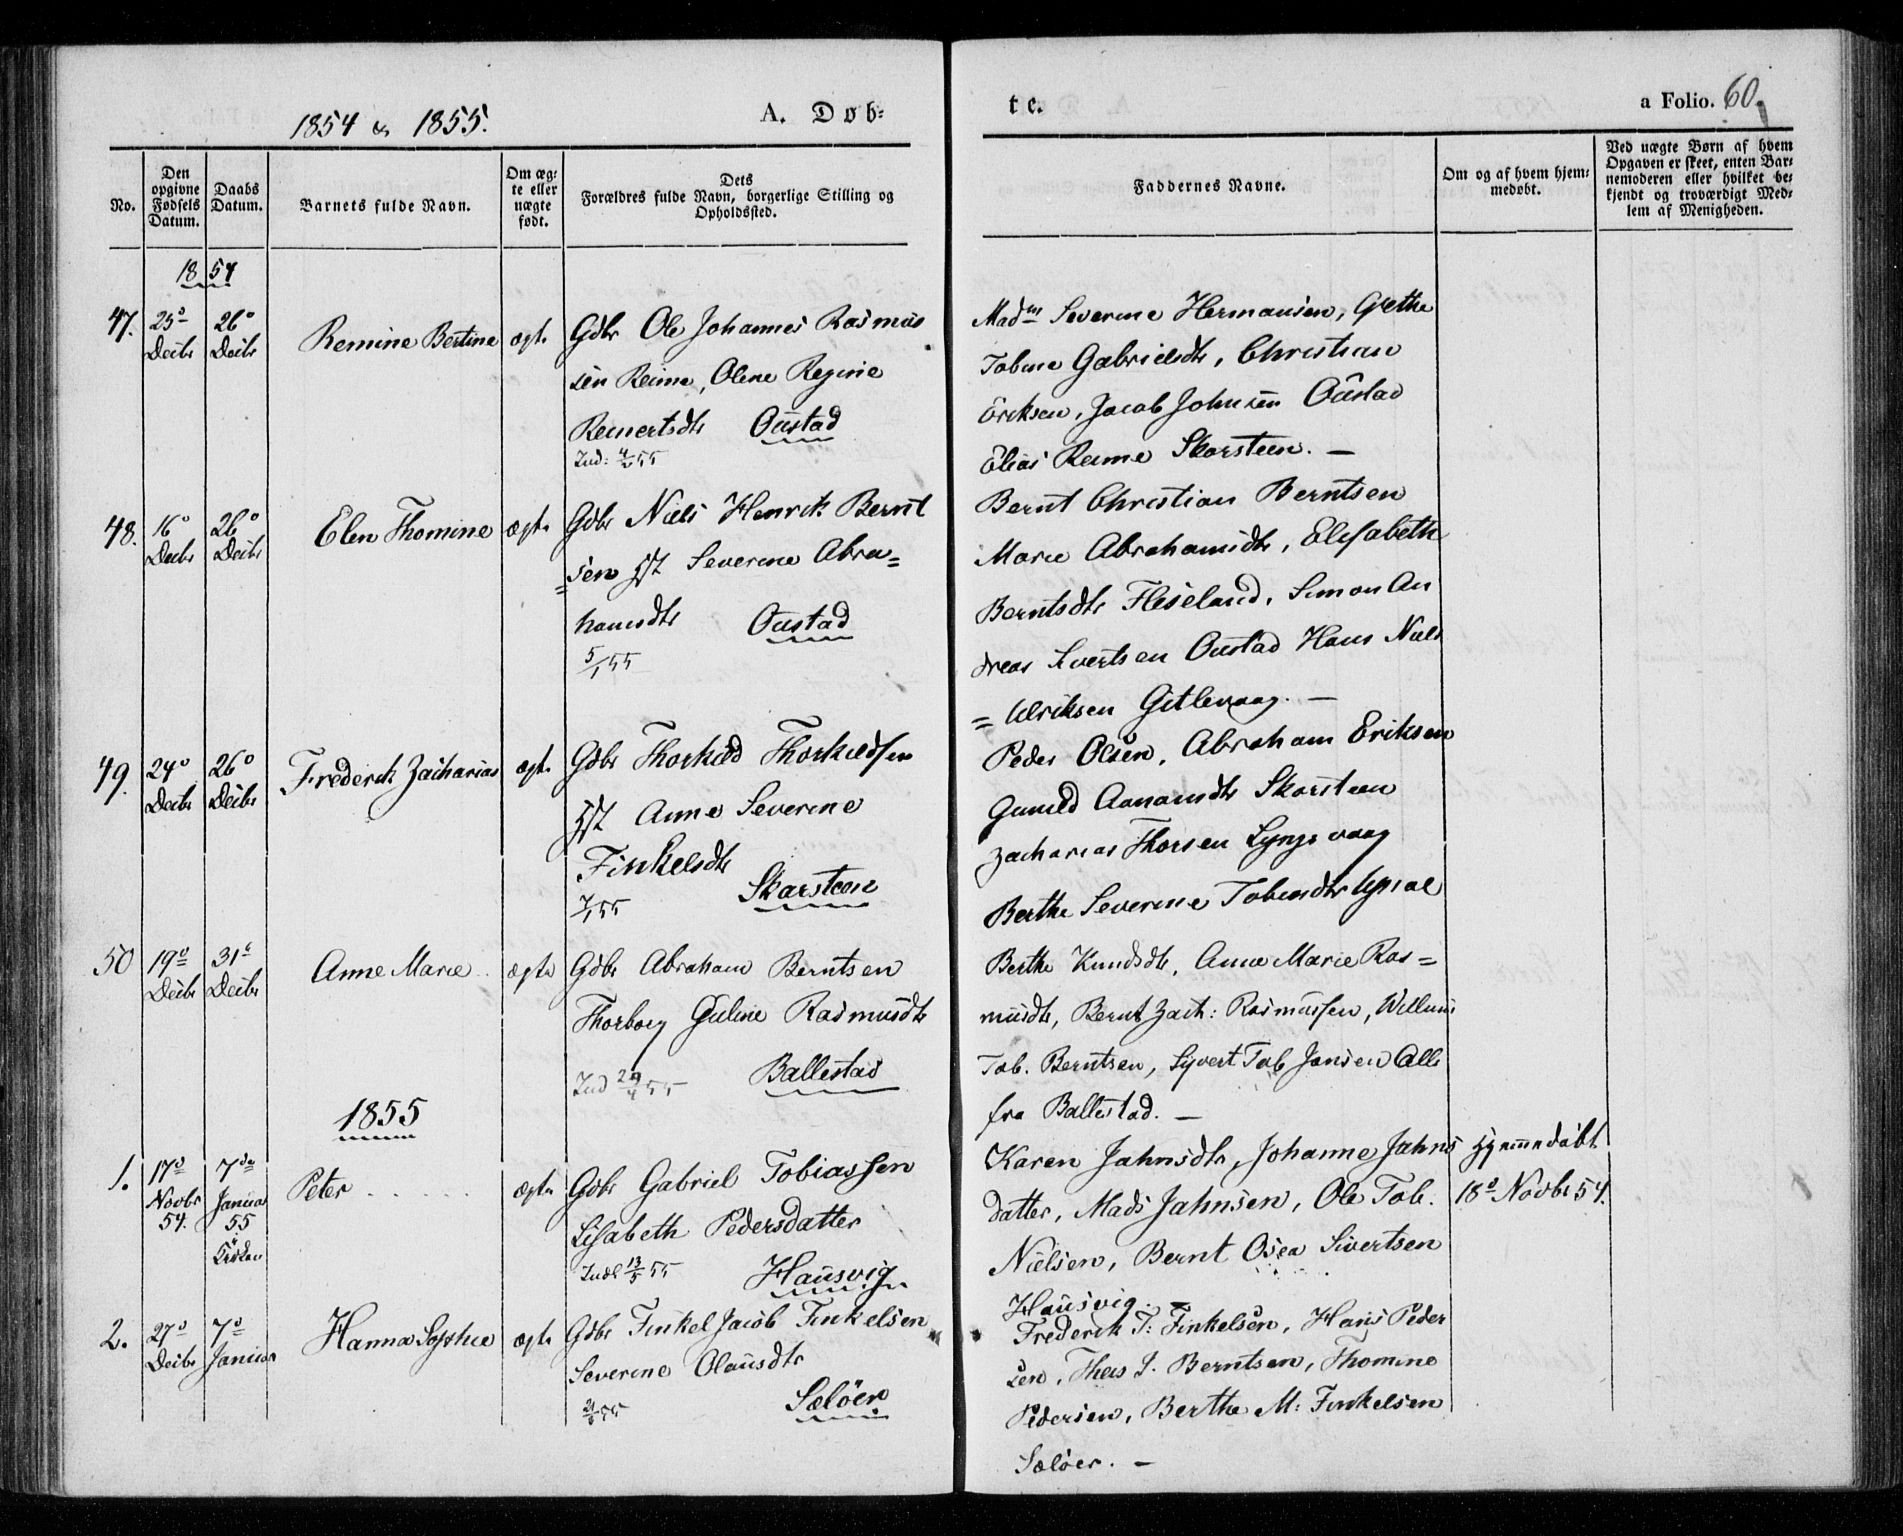 1854 & 1855.
A. Døb-
te.
a Folio. 60.
No.
Den opgivne Fødsels Datum.
Daabs Datum.
Barnets fulde Navn.
Om ægte eller uægte født.
Dets Forældres fulde Navn, borgerlige Stilling og Opholdssted.
Faddernes Navne.
Om og af hvem hjemmedøbt.
Ved uægte Børn af hvem Opgaven er skeet, enten Barnemoderen eller hvilket bekjendt og troværdigt Medlem af Menigheden.
1854
47. 25de Decbr 26de Decbr Remine Bertine ægte
Gdbr Ole Johannes Rasmus
sen Reime, Olene Regine
Reinertsdtr Oustad
Ind: 4/55
Madm Severine Hermansen, Grethe
Tobine Gabrielsdtr, Christian
Eriksen, Jacob Johnsen Oustad
Elias Reime Skarsteen. —
48. 16de Decbr 26de Decbr Elen Thomine ægte
Gdbr Niels Henrik Bernt
=sen Hst Severine Abra=
hamsdtr Oustad
5/1 55
Bernt Christian Berntsen
Marie Abrahamsdtr, Elisabeth
Berntsdtr Fleseland, Simon An
dreas Sivertsen Oustad Hans Niels
= Ulriksen Gitlevaag. —
49. 24de Decbr 26de Decbr Frederik Zacharias ægte
Gdbr Thorkild Thorkildsen
Hst Anne Severine
Finkelsdtr
7/1 55 Skarsteen
Peder Olsen, Abraham Eriksen
Gunild Aanamsdtr Skarsteen
Zacharias Thorsen Lyngsvaag
Berthe Severine Tobiasdtr Upsal
50 19de Decbr 31te Decbr Anne Marie ægte
Gdbr Abraham Berntsen
Thorborg Guline Rasmusdtr
Ind 29/4 55 Ballestad
Berthe Knudsdtr, Anne Marie Ras=
musdtr, Bernt Zach: Rasmussen, Willum
Tob. Berntsen, Syvert Tob Jansen Alle
fra Ballestad. —
1855
1. 17de Novbr 54. 7de Januar 55 i Kirken Peter ægte
Gdbr Gabriel Tobiassen
Lisabeth Pedersdatter
Indl 13/5 55 Hausvig
Karen Jahnsdtr, Johanne Jahns
datter, Mads Jahnsen, Ole Tob.
Nielsen, Bernt Osea Sivertsen
Hausvig. —
Hjemmedøbt
18de Novbr 54.
2. 27de Decbr 7de Januar Hanna Sophie ægte
Gdbr Finkel Jacob Finkelsen
Severine Olausdtr
Sæløer
Frederik T: Finkelsen, Hans Peder
sen, Theis J. Berntsen, Thomine
Pedersen, Berthe M: Finkelsen
Sæløer. —